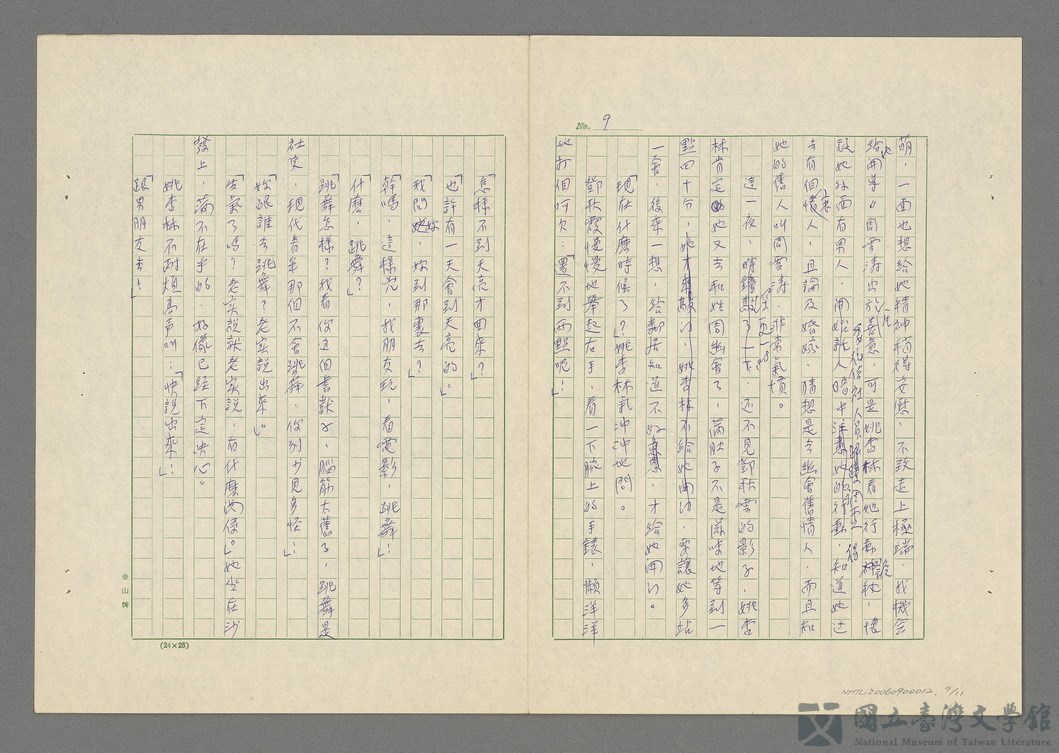 No. 9
萌，一面也想給她精神稍得安慰，不致走上極端，找機會
給她開導。周雪濤出於善意，可是姚杏林看她行動神秘，懷
疑她外面有男人，暗中 知道她過
去有個懷人，且論及婚嫁，猜想是去幽會舊情人，而且知
她的舊人叫周雪濤，非常氣憤。
這一夜，時鐘敲了一下，還不見鄧秋雲的影子，姚杏
林肯定她又去和姓周幽會了，滿肚子不是滋味地等到一
點四十分，她才敲門，姚杏林不給她開門，要讓她多站
一會，後來一想，給鄰居知道不好意思，才給她開門。
「現在什麼時候了？」姚杏林氣沖沖地問。
鄧秋霞慢慢地舉起右手，看一下腕上的手錶，懶洋洋
地打個呵欠：「還不到兩點呢！」
「怎樣不到天亮才回來？」
「也許有一天會到天亮的。」
「我問妳，妳到那裏去？」
「幹嗎，這樣兇，找朋友玩，看電影，跳舞！」
「什麼，跳舞？」
「跳舞怎樣？我看你這個書獃子，腦筋太舊了，跳舞是
社交，現代青年那個不會跳舞，你別少見多怪！」
「妳跟誰去跳舞？老實說出來。」
「生氣了嗎？老實說就老實說，有什麼關係」。她坐在沙
發上，滿不在乎的，好像已經下定決心。
姚杏林不耐煩高声叫：「快說出來！」
「跟男朋友去！」
金山牌
(24×25)
NMTL20060900012, 9/11
國立臺灣文學館
National Museum of Taiwan Literature